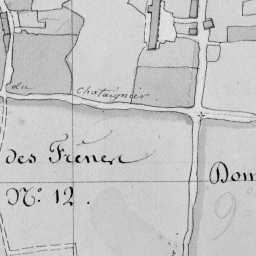 du Chataignier
des Frênes
Dom
N.º 12.
9